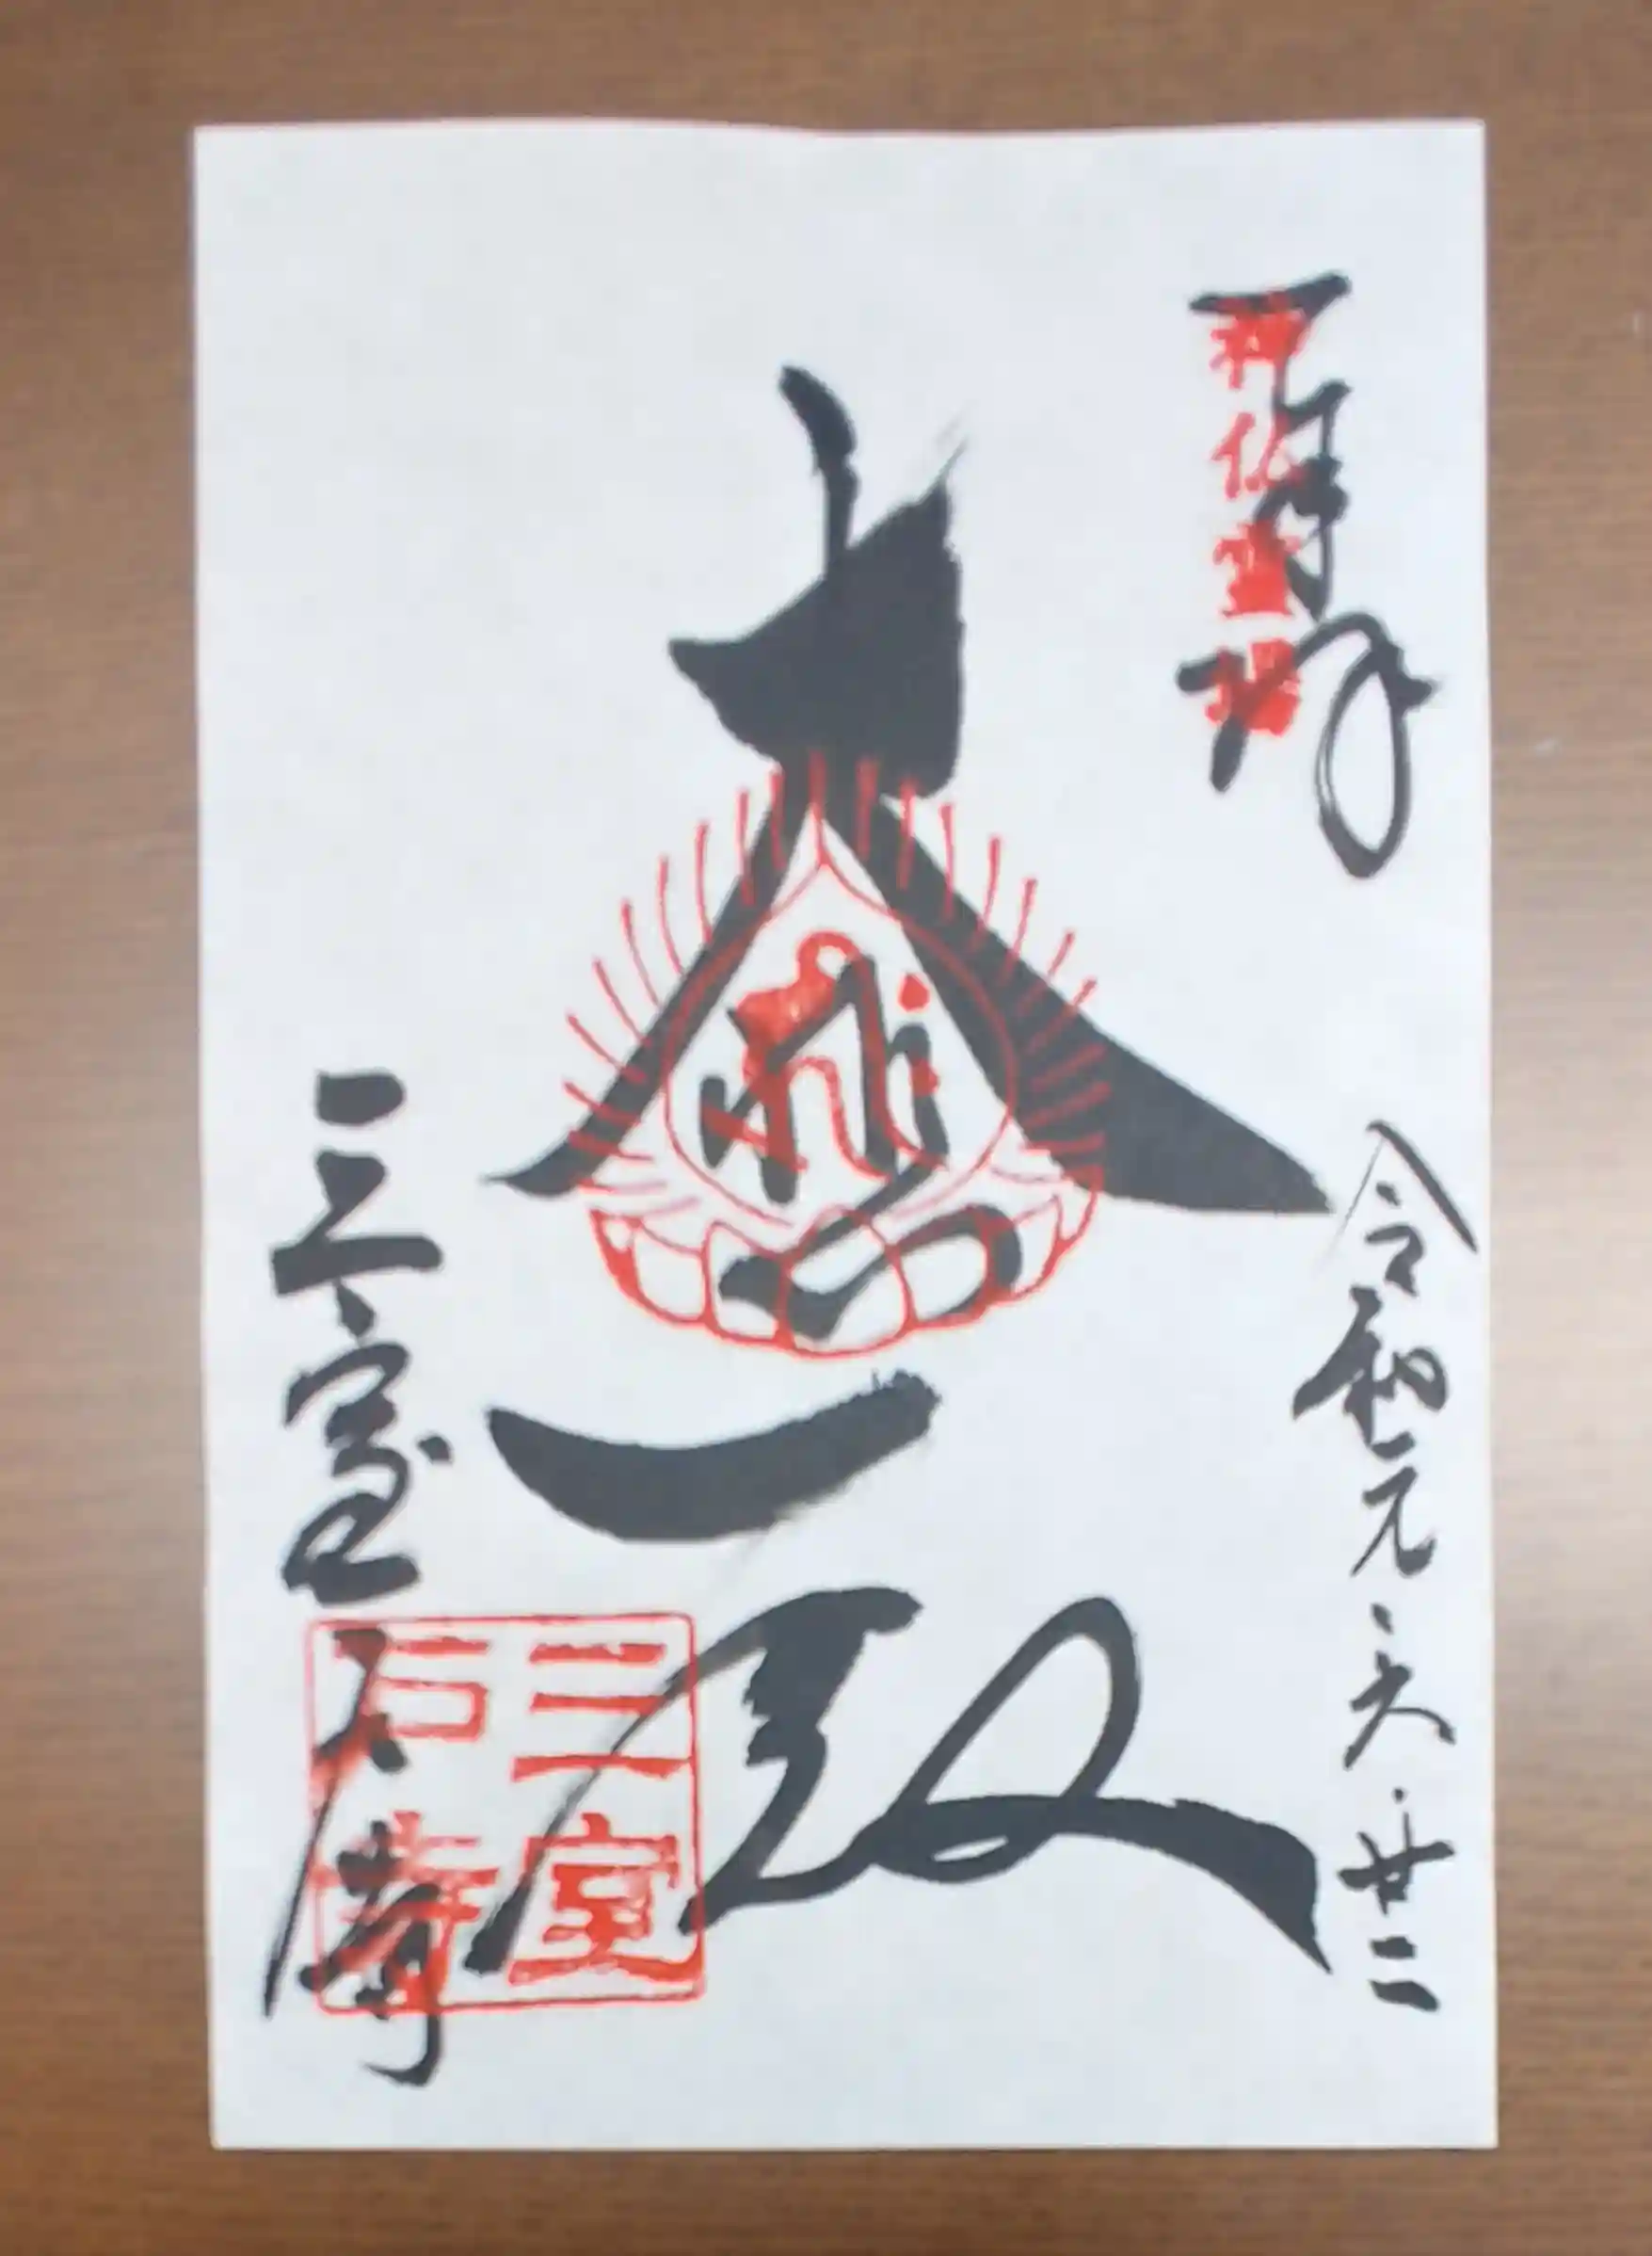 奉拝
神仏霊場
令和元.六.廿二
大悲殿
三室戸寺
三室
戸寺